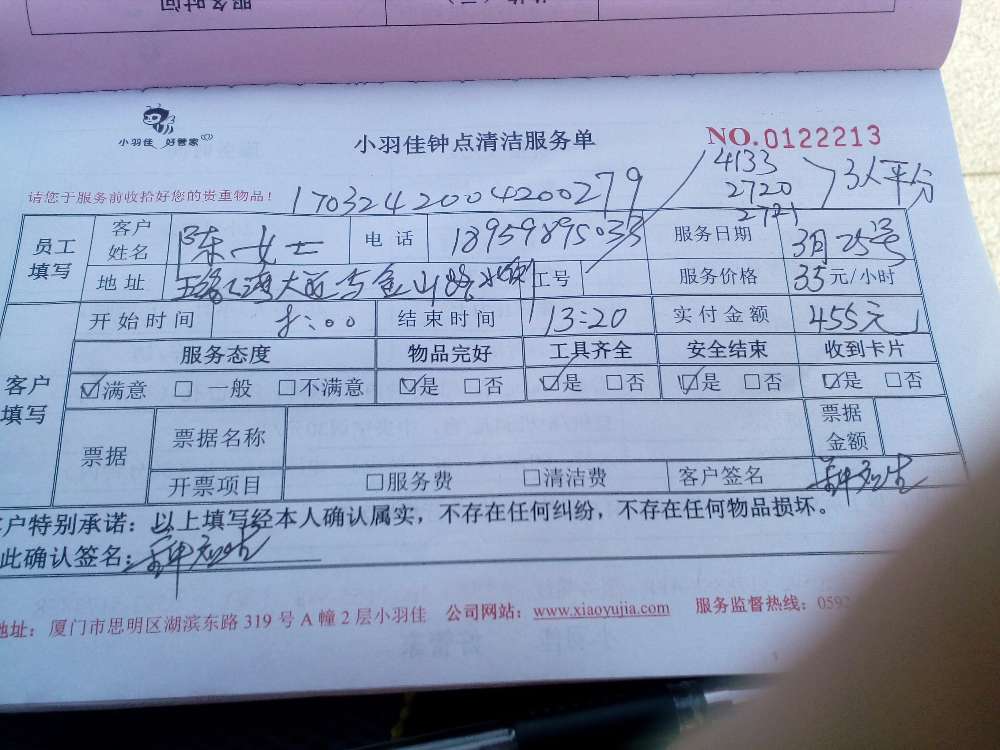 服务时间
小羽佳 好管家
小羽佳钟点清洁服务单
NO.0122213
请您于服务前收拾好您的贵重物品！
1703242004200279
4133
2720
2721
3人平分
员工填写 客户姓名 陈女士 电话 18959895033 服务日期 3月25号
地址 工号 服务价格 35元/小时
客户填写 开始时间 8:00 结束时间 13:20 实付金额 455元
服务态度 物品完好 工具齐全 安全结束 收到卡片
☑满意 □一般 □不满意 ☑是 □否 ☑是 □否 ☑是 □否 ☑是 □否
票据 票据名称 票据金额
开票项目 □服务费 □清洁费 客户签名
客户特别承诺：以上填写经本人确认属实，不存在任何纠纷，不存在任何物品损坏。
此确认签名：
地址：厦门市思明区湖滨东路319号A幢2层小羽佳 公司网站：www.xiaoyujia.com 服务监督热线：059